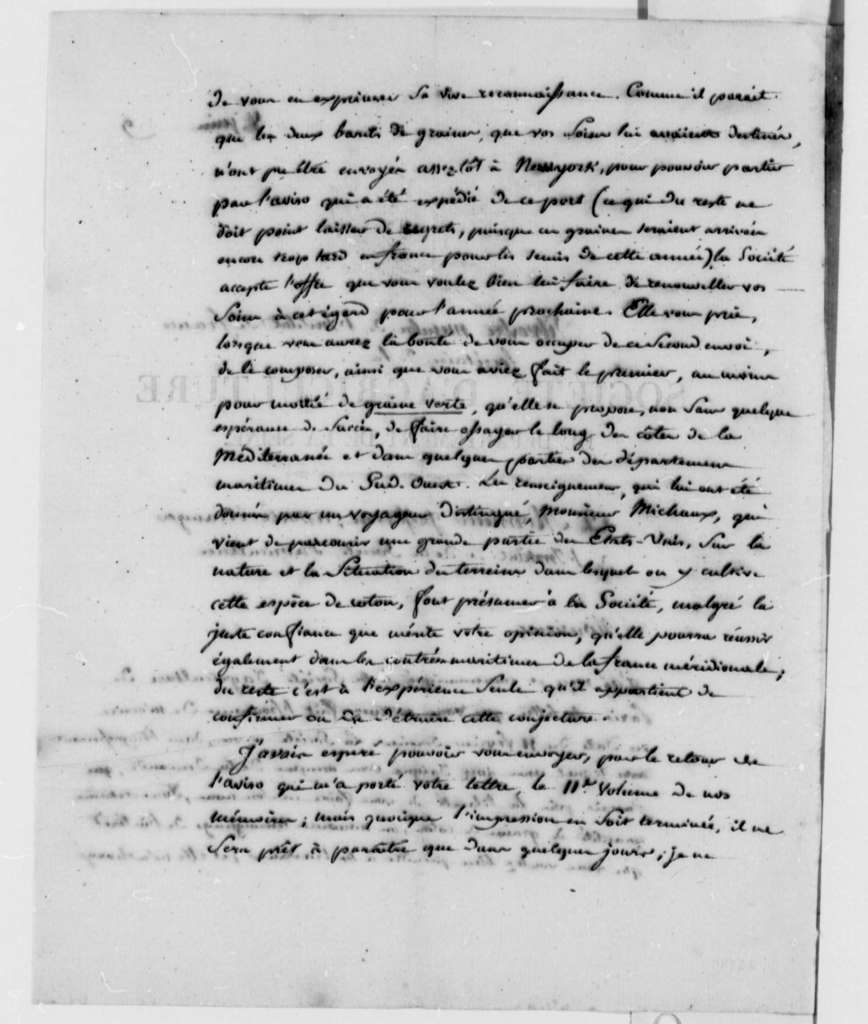 de vous en exprimer sa vive reconnaissance. Comme il parait
que les deux barils de graines, que vos Soins lui avaient destinés,
n'ont pu être envoyés assez tôt à Newyork, pour pouvoir partir
par l'aviso qui a été expédié de ce port (ce qui du reste ne
doit point laisser de regrets, puisque ces graines seraient arrivées
encore trop tard en france pour les semis de cette année) la Société
accepte l'offre que vous voulez bien lui faire de renouveller vos
Soins à cet égard pour l'année prochaine. Elle vous prie,
lorsque vous aurez la bonté de vous occuper de ce Second envoi,
de le composer, ainsi que vous aviez fait le premier, au moins
pour moitié de graine verte, qu'elle se propose, non Sans quelque
espérance de Succès, de faire essayer le long des côtes de la
Méditerranée et dans quelques parties des départemens
maritimes du Sud-Ouest. Les renseignemens, qui lui ont été
donnés par un voyageur distingué, Monsieur Michaux, qui
vient de parcourir une grande partie des Etats-Unis, Sur la
nature et la Situation des terreins dans lesquels on y cultive
cette espèce de coton, font présumer à la Société, malgré la
juste confiance que mérite votre opinion, qu'elle pourra réussir
également dans les contrées maritimes de la france méridionale;
du reste c'est à l'expérience Seule qu'il appartient de
confirmer ou de détruire cette conjecture.
J'avais espéré pouvoir vous envoyer, pour le retour de
l'aviso qui m'a porté votre lettre, le 11e Volume de nos
mémoires; mais quoique l'impression en Soit terminée, il ne
Sera prêt à paraitre que dans quelques jours; je ne